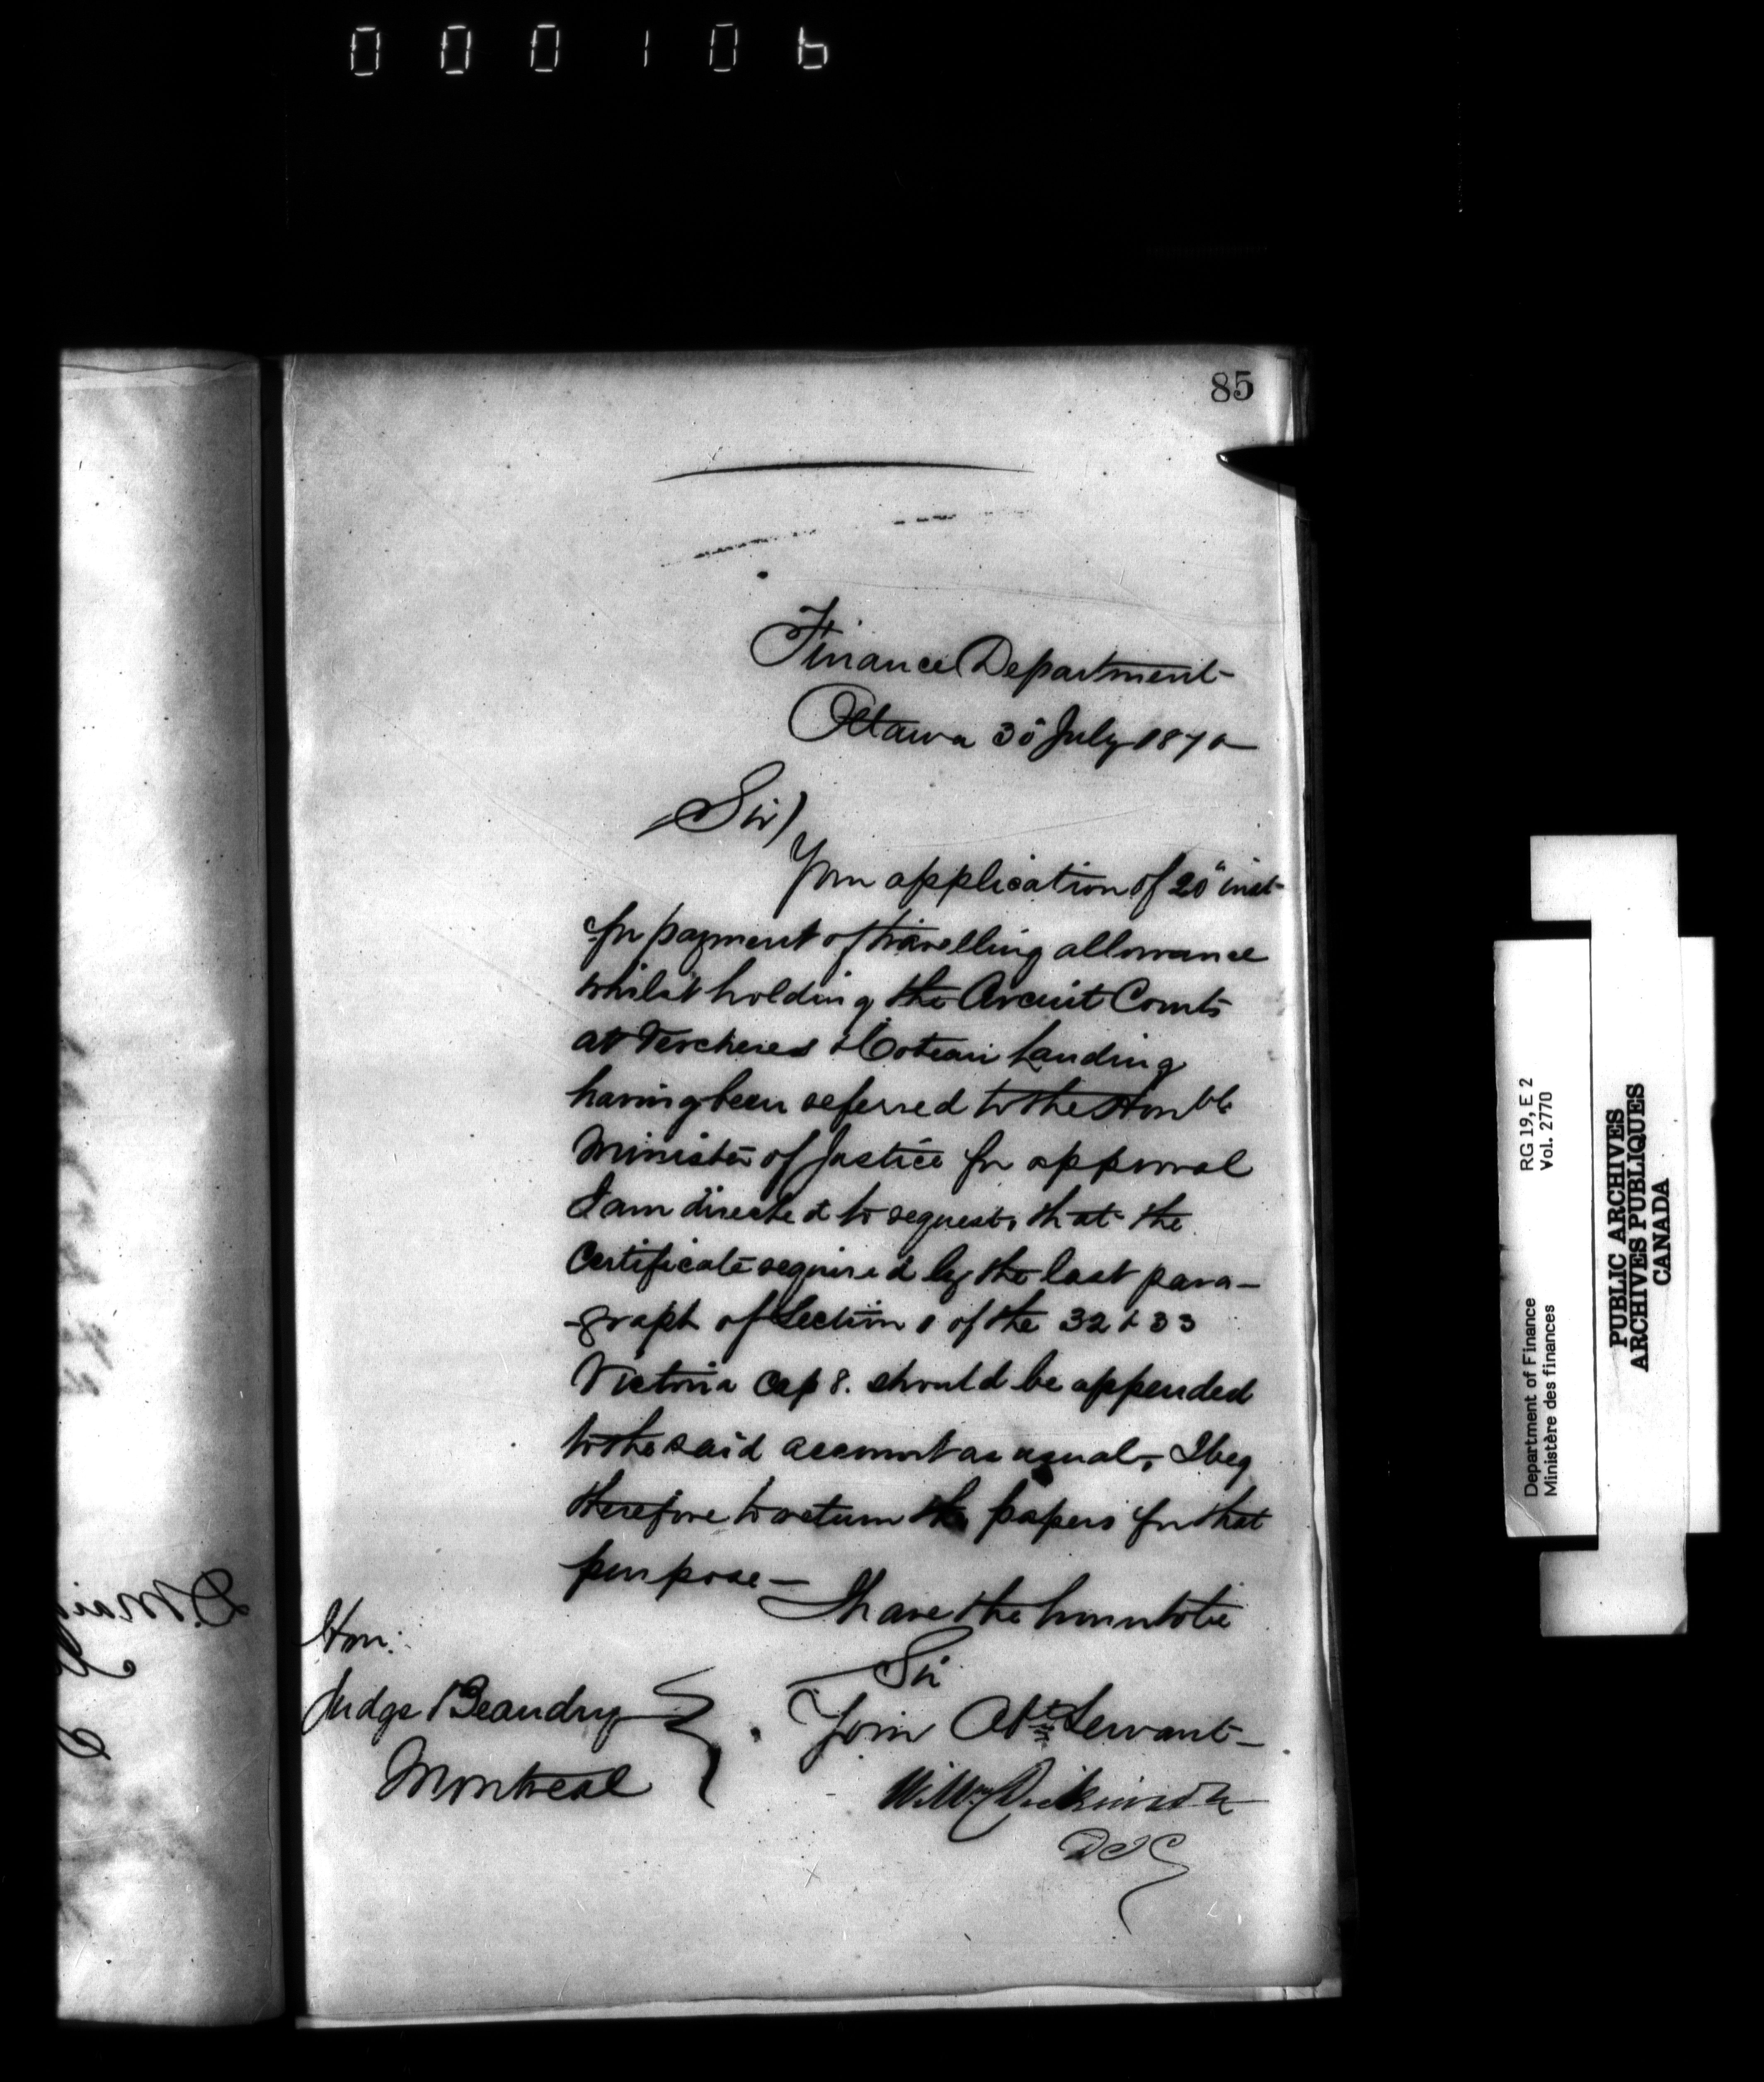 000106
85
Finance Department
Ottawa 30 July 1870
Sir,
Your application of 20" inst
for payment of travelling allowance
whilst holding the Circuit Courts
at Vercheres & Coteau Landing
having been referred to the Honble
Minister of Justice for approval
I am directed to request, that the
Certificate required by the last para-
-graph of Section 1 of the 32 & 33
Victoria Cap 8. should be appended
to the said account as usual, I beg
therefore to return the papers for that
purpose—
I have the honor to be
Sir
Your Obt Servant
Wm Dickinson
Hon:
Judge Beaudry
Montreal
Department of Finance RG 19, E 2
Ministère des finances Vol. 2770
PUBLIC ARCHIVES
ARCHIVES PUBLIQUES
CANADA